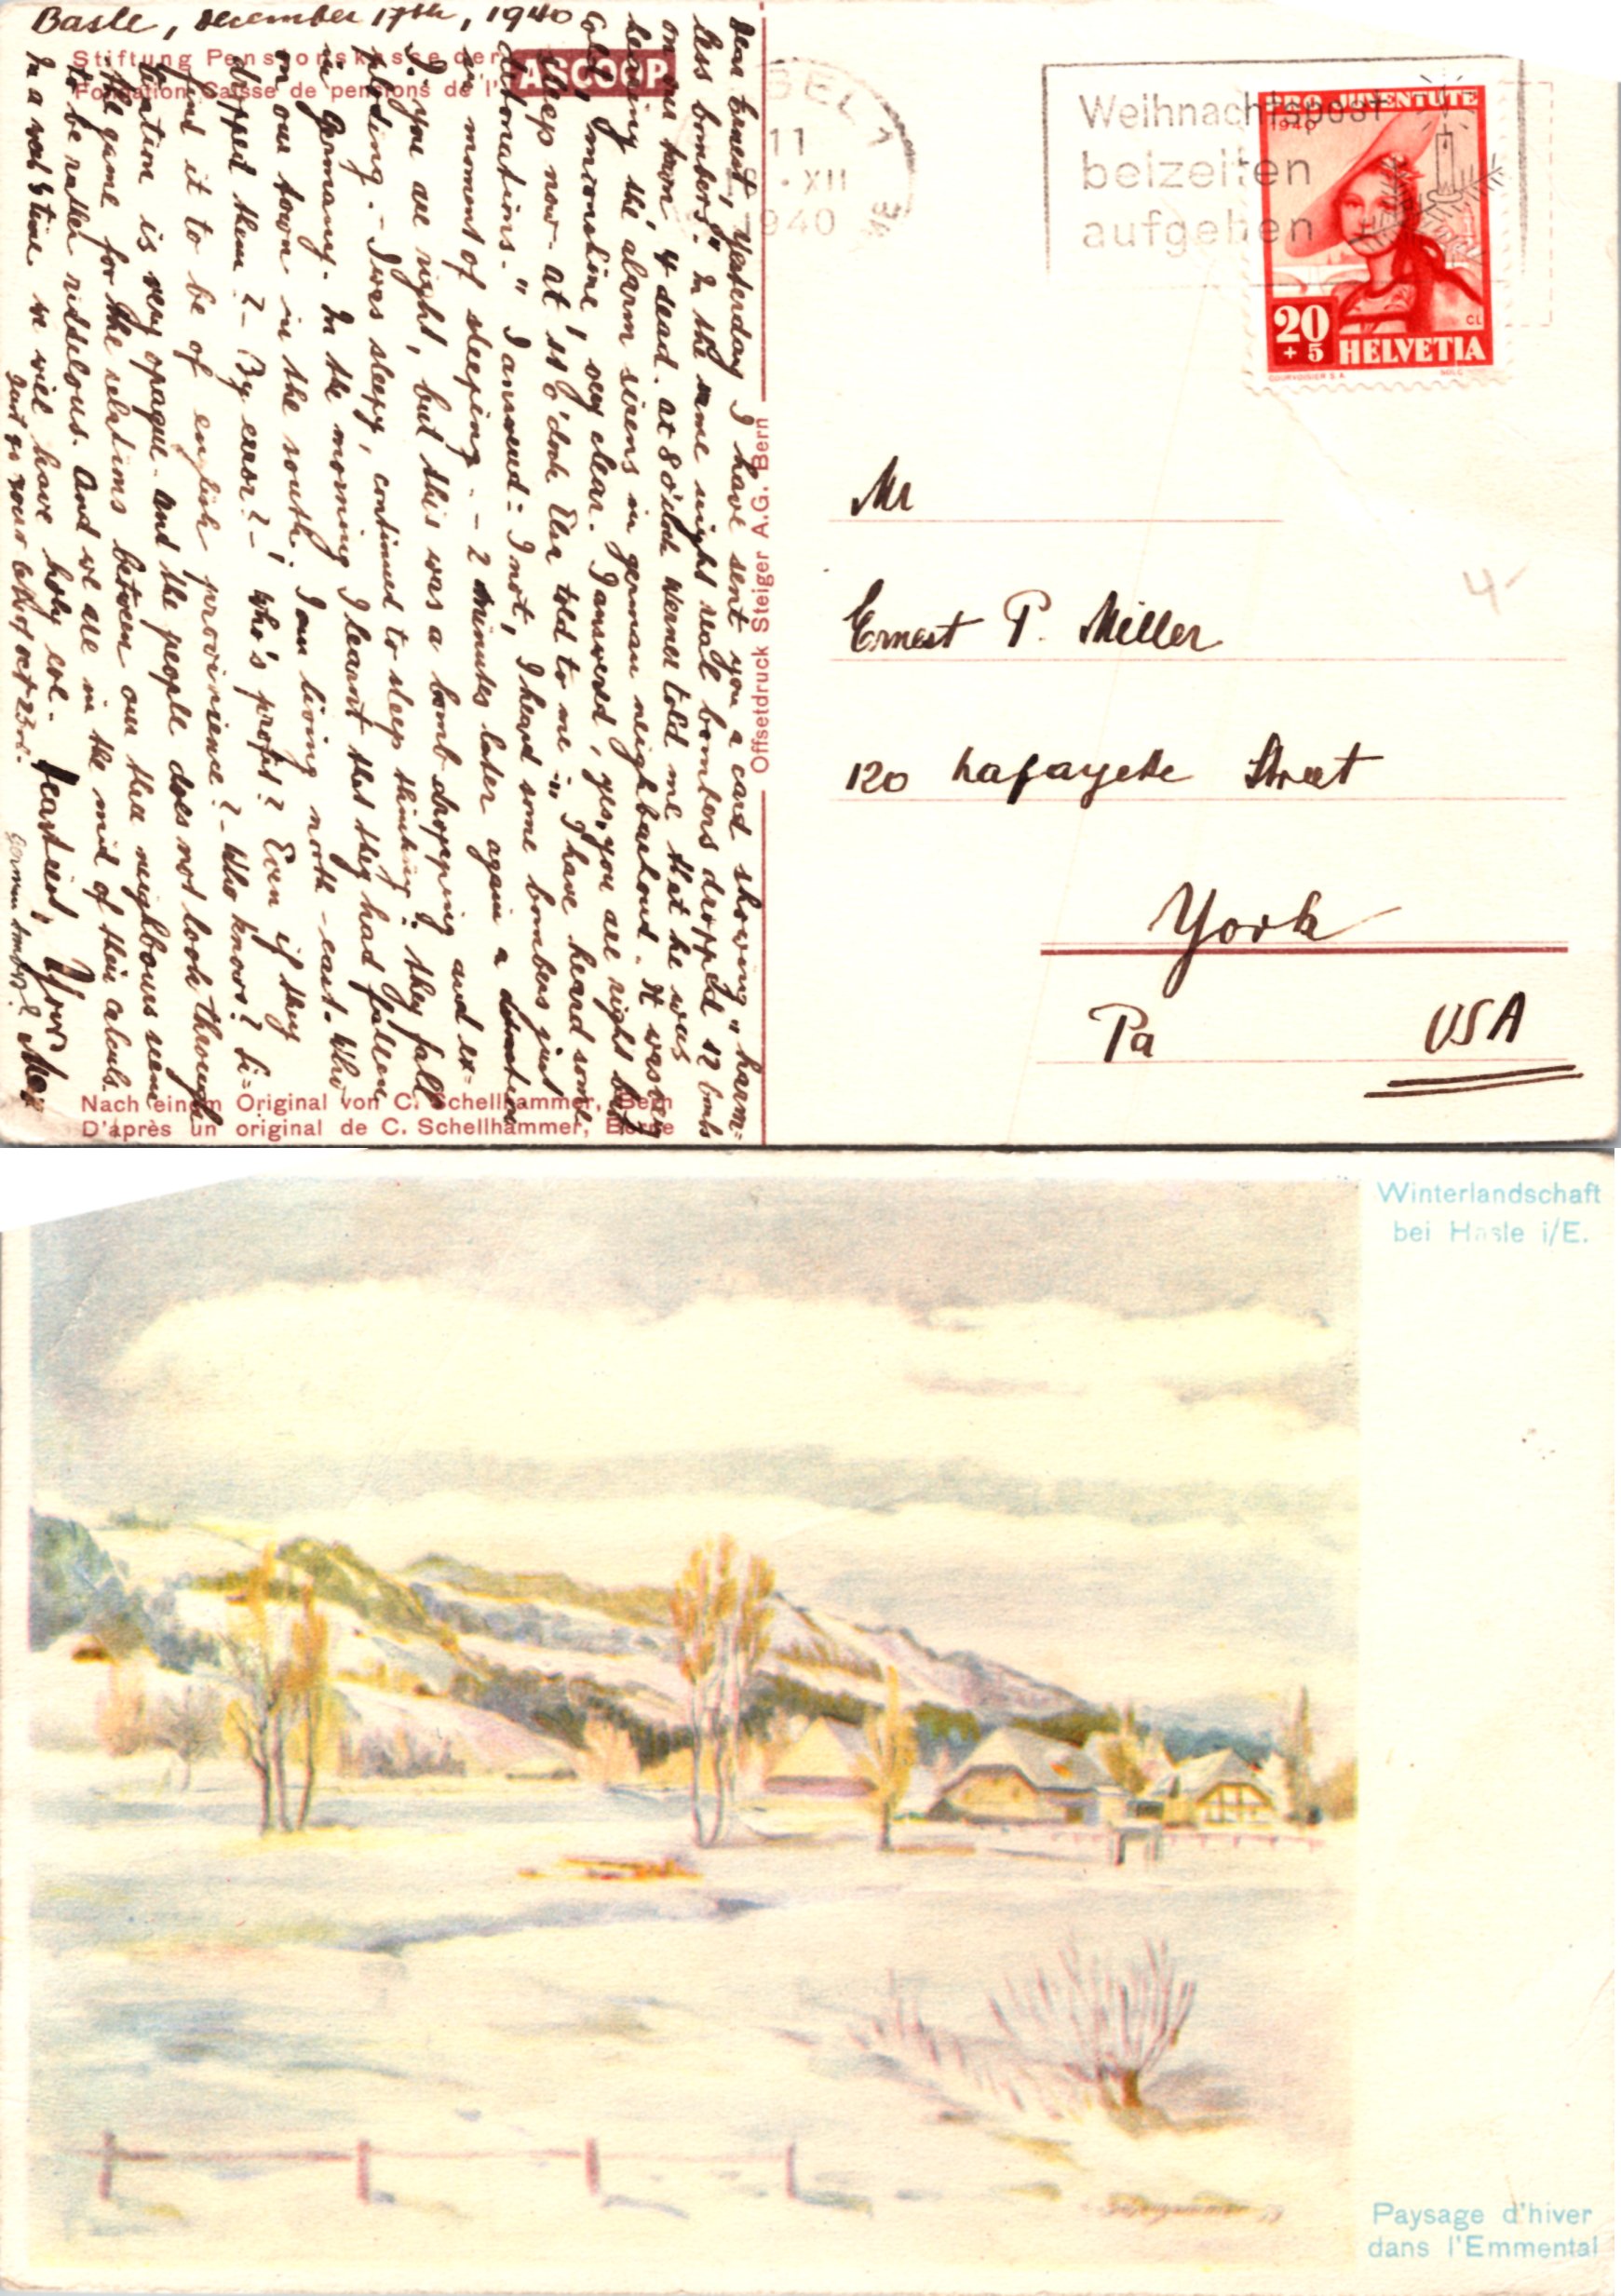 Basle, December 17th, 1940
Stiftung Pensionskasse der
Fondation Caisse de pensions de l'
ASCOOP
Dear Ernest, Yesterday I have sent you a card showing „harm=
less bombers". In the same night real bombers dropped 12 bombs
on our town 4 dead. at 8 o'clock Werner told me that he was
hearing the alarm sirens in german neighbourhood. It was very
cold, moonshine, very clear. I answered, yes, you are right but
sleep now- at 11 o'clock Elsa told to me: „I have heard some
detonations." I answered: I not, I heard some bombers just
in moment of sleeping. - 2 minutes later again a detonation
I: you are right, but this was a bomb dropping and ex=
ploding. - I was sleepy, continued to sleep thinking: they fall
in Germany. In the morning I learnt that they had fallen
on our town in the south. I am living north-east. Who
dropped them? - By error? - Who's profit? Even if they
find it to be of english provinience? - Who knows? Si=
tuation is very opaque. And the people does not look through
the game for the relations between our these neighbours seem
to be rather ridiculous. And we are in the mid of their calculs.
In a week's time we will have holy eve. Heartily, Your Max
just go your of oct 23rd. German bombs?
Nach einem Original von C. Schellhammer, Bern
D'après un original de C. Schellhammer, Berne
Offsetdruck Steiger A.G. Bern
BASEL 1
11
XII
1940
Weihnachtspost
beizeiten
aufgeben
PRO JUVENTUTE
1940
20
+ 5
HELVETIA
CL
COURVOISIER S.A.
4-
Mr
Ernest P. Miller
120 Lafayette Street
York
Pa USA
Winterlandschaft
bei Hasle i/E.
Paysage d'hiver
dans l'Emmental